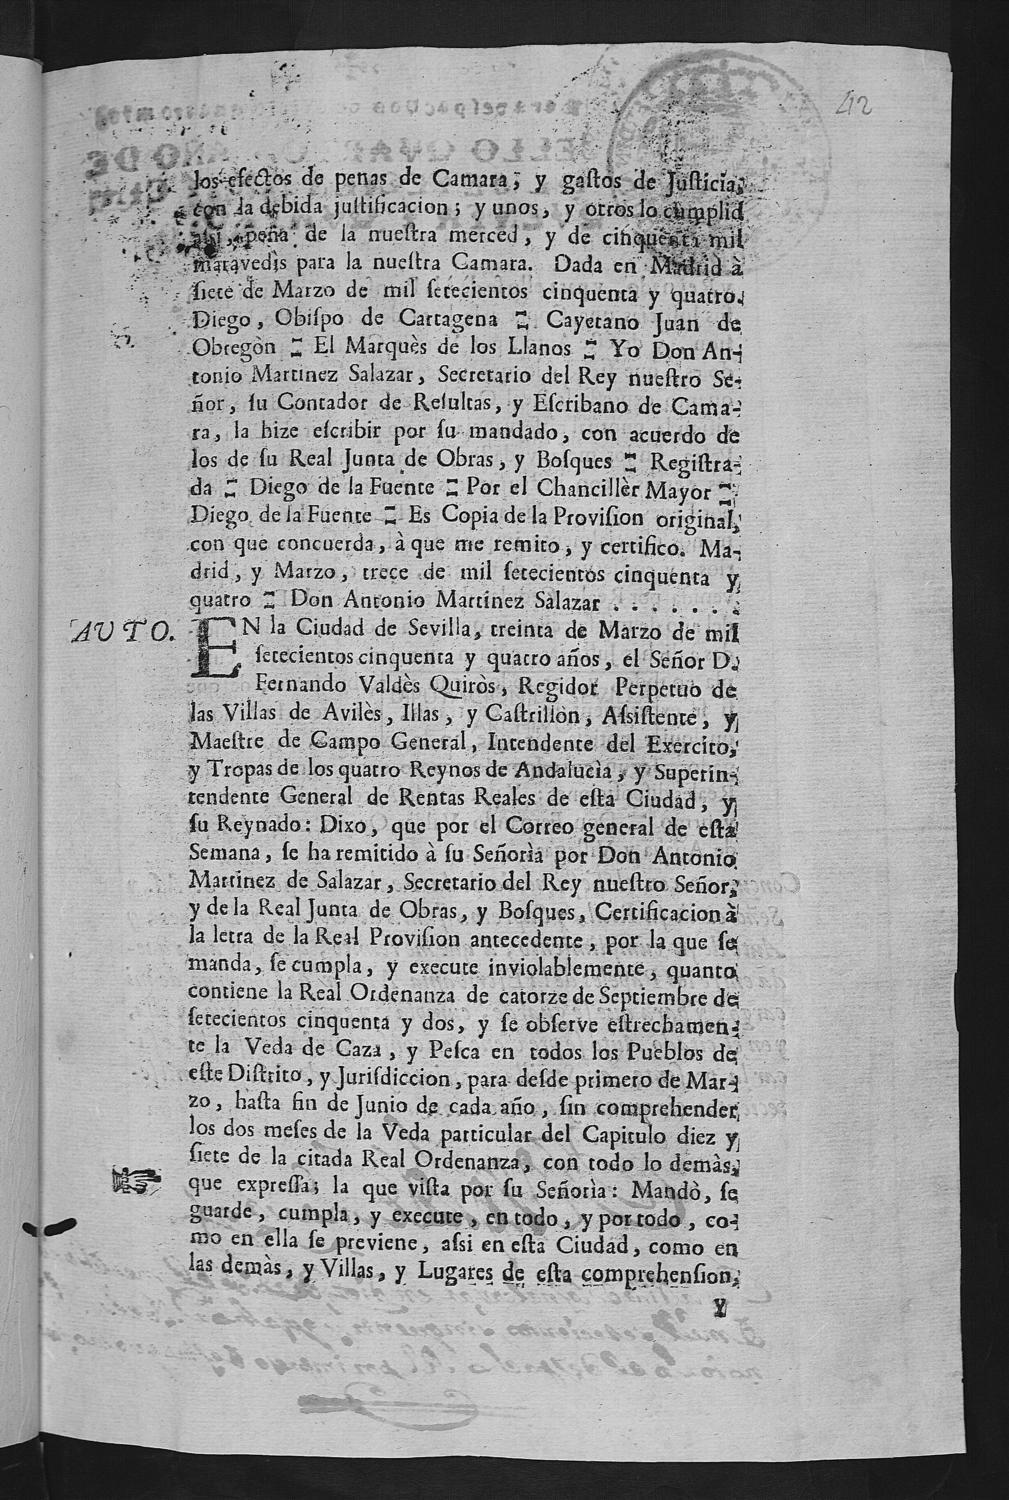 42
los efectos de penas de Camara, y gastos de Justicia,
con la debida justificacion; y unos, y otros lo cumplid
assi, pena de la nuestra merced, y de cinquenta mil
maravedìs para la nuestra Camara. Dada en Madrid à
siete de Marzo de mil setecientos cinquenta y quatro.
Diego, Obispo de Cartagena = Cayetano Juan de
Obregòn = El Marquès de los Llanos = Yo Don An-
tonio Martinez Salazar, Secretario del Rey nuestro Se-
ñor, su Contador de Resultas, y Escribano de Cama-
ra, la hize escribir por su mandado, con acuerdo de
los de su Real Junta de Obras, y Bosques = Registra-
da = Diego de la Fuente = Por el Chancillèr Mayor =
Diego de la Fuente = Es Copia de la Provision original,
con que concuerda, à que me remito, y certifico. Ma-
drid, y Marzo, trece de mil setecientos cinquenta y
quatro = Don Antonio Martinez Salazar . . . . . . .
AUTO. EN la Ciudad de Sevilla, treinta de Marzo de mil
setecientos cinquenta y quatro años, el Señor D.
Fernando Valdès Quiròs, Regidor Perpetuo de
las Villas de Avilès, Illas, y Castrillòn, Assistente, y
Maestre de Campo General, Intendente del Exercito,
y Tropas de los quatro Reynos de Andalucìa, y Superin-
tendente General de Rentas Reales de esta Ciudad, y
su Reynado: Dixo, que por el Correo general de esta
Semana, se ha remitido à su Señorìa por Don Antonio
Martinez de Salazar, Secretario del Rey nuestro Señor,
y de la Real Junta de Obras, y Bosques, Certificacion à
la letra de la Real Provision antecedente, por la que se
manda, se cumpla, y execute inviolablemente, quanto
contiene la Real Ordenanza de catorze de Septiembre de
setecientos cinquenta y dos, y se observe estrechamen-
te la Veda de Caza, y Pesca en todos los Pueblos de
este Distrito, y Jurisdiccion, para desde primero de Mar-
zo, hasta fin de Junio de cada año, sin comprehender
los dos meses de la Veda particular del Capitulo diez y
siete de la citada Real Ordenanza, con todo lo demàs,
que expressa; la que vista por su Señorìa: Mandò, se
guarde, cumpla, y execute, en todo, y por todo, co-
mo en ella se previene, assi en esta Ciudad, como en
las demàs, y Villas, y Lugares de esta comprehension,
Y